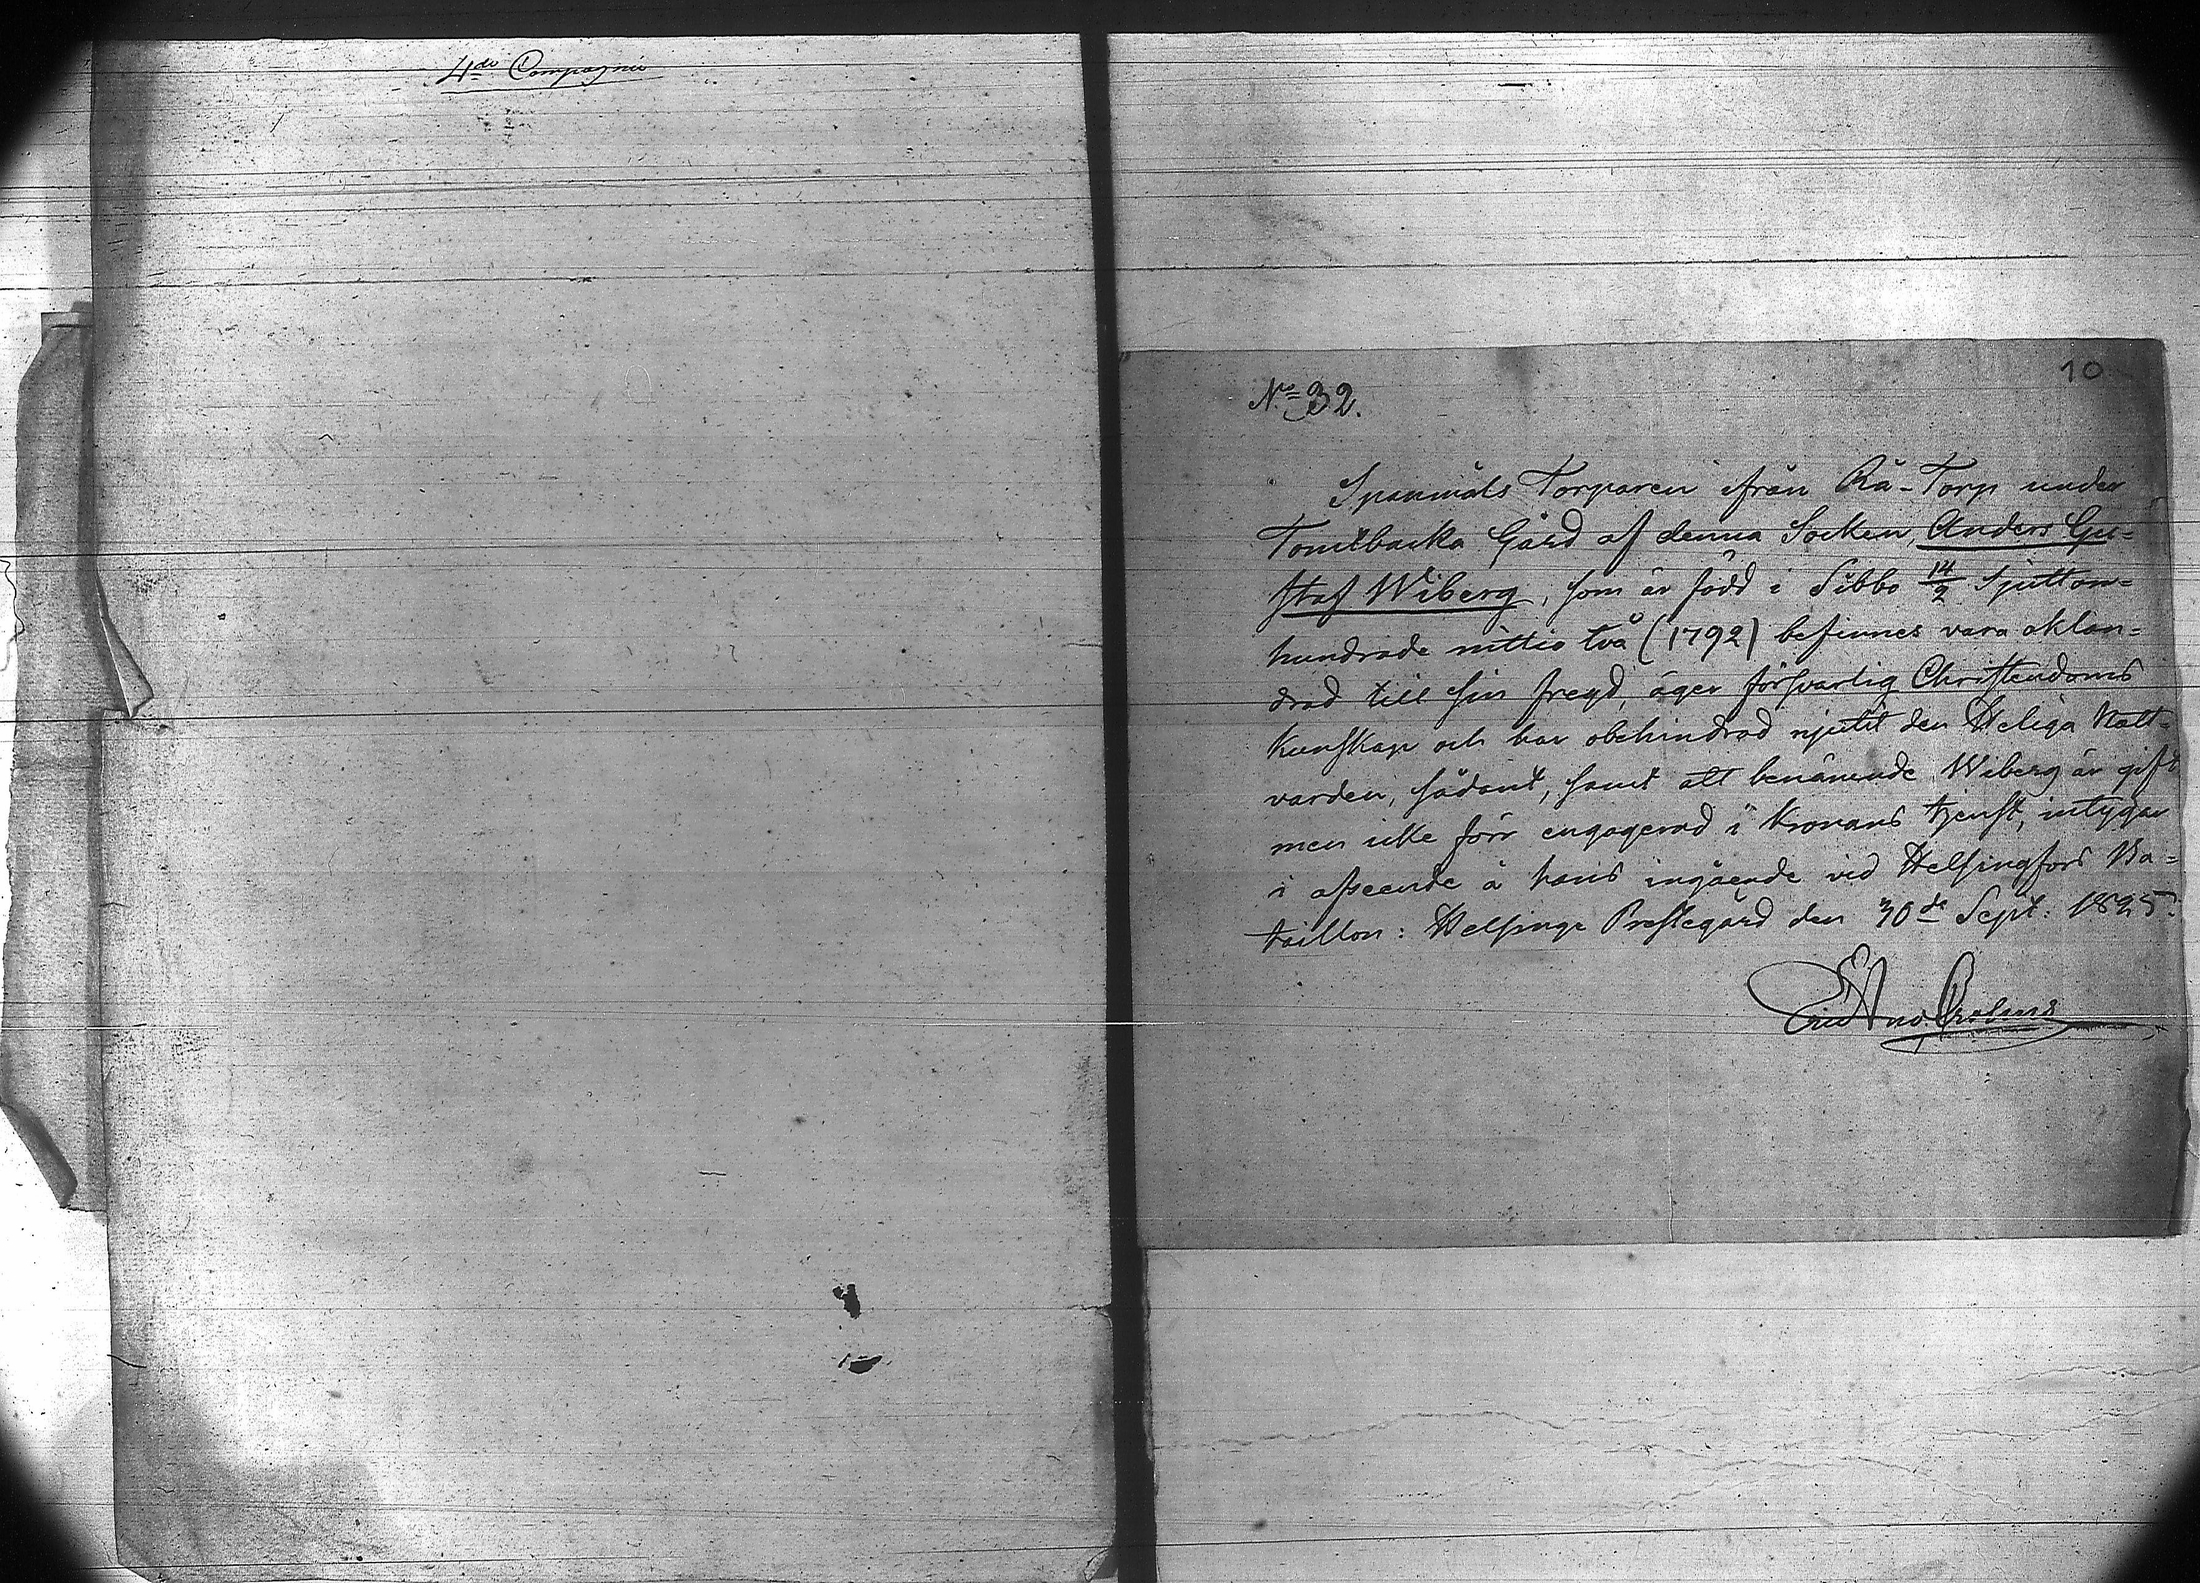 4de Compagnie
10
No 32.
Spanmåls Torparen ifrån Rå-Torp under
Tomtbacka Gård af denna Socken, Anders Gu=
staf Wiberg, som är född i Sibbo 14/2 sjutton=
hundrade nittio två (1792) befinnes vara oklan=
drad till sin fregd, äger försvarlig Christendoms
Kunskap och har obehindrad njutit den Heliga Natt=
varden, sådant, samt att benämnde Wiberg är gift
men icke förr engagerad i Kronans tjenst, intygar
i afseende å hans ingående vid Helsingfors Ba=
taillon: Helsinge Prestegård den 30de Sept. 1825.